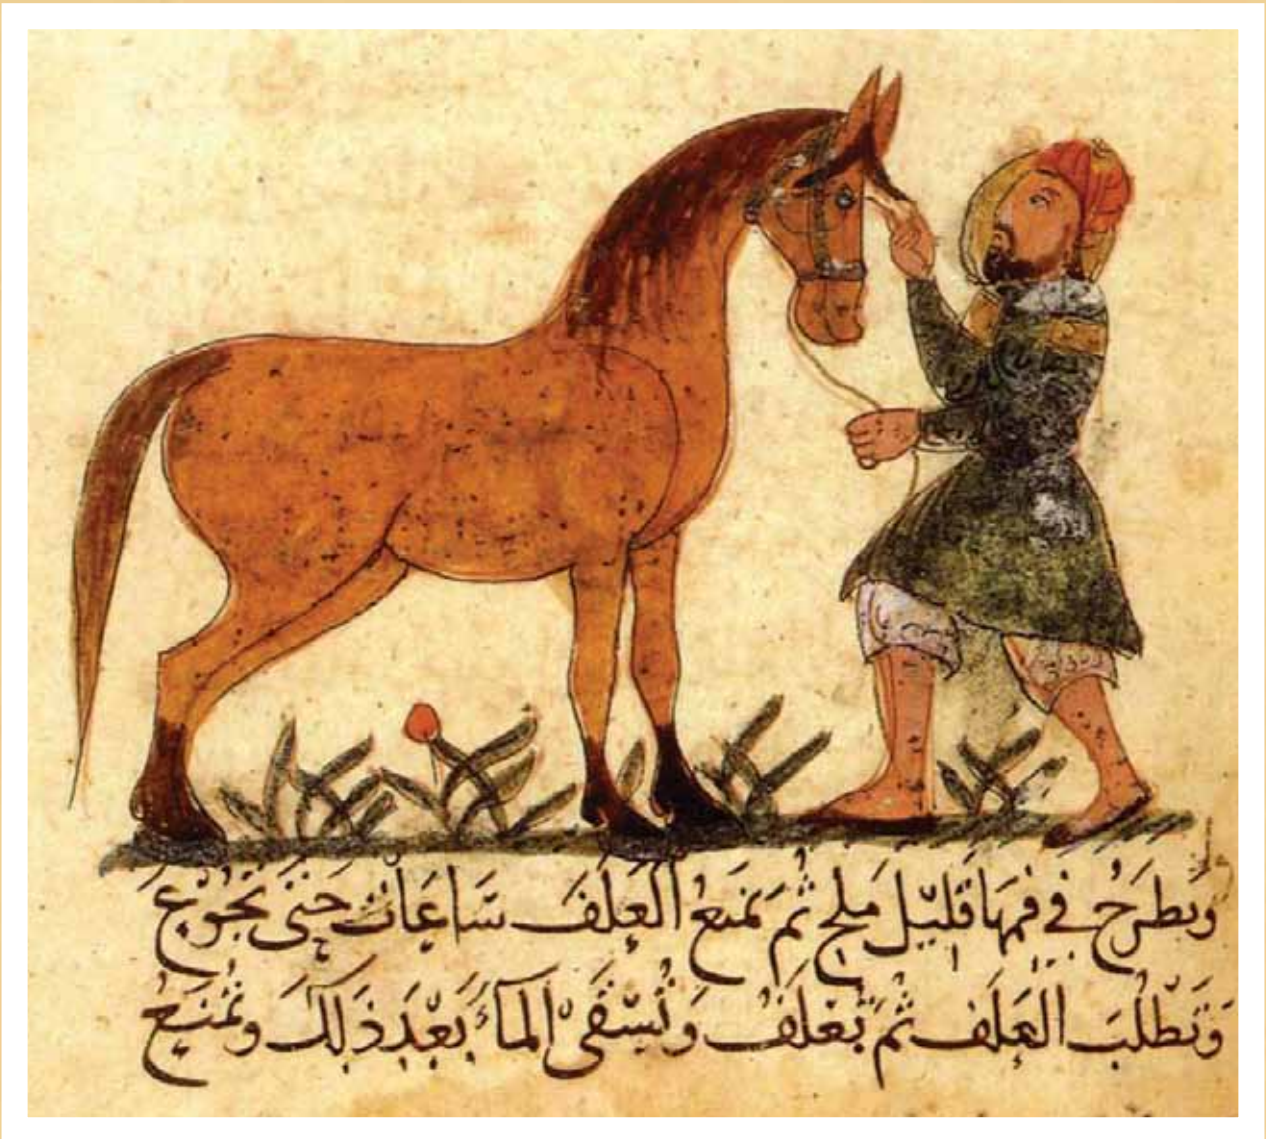 ويطرح في فمها قليل ملح ثم تمنع العلف ساعات حتى تجوع
وتطلب العلف ثم تعلف وتسقى الماء بعد ذلك وتمنع